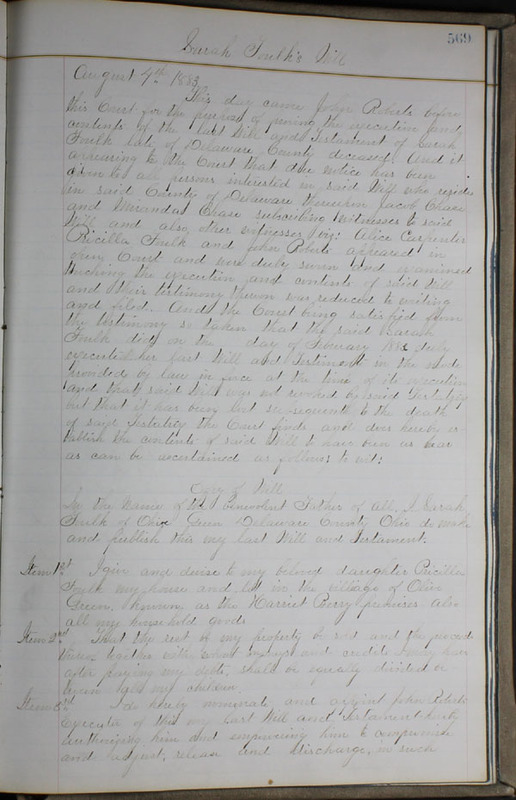 569
Sarah Foulk's Will
August 4th 1883
This day came John Roberts before
this Court for the purpose of proving the execution and
contents of the last Will and Testament of Sarah
Foulk late of Delaware County deceased. And it
appearing to the Court that due notice has been
given to all persons interested in said Will who reside
in said County of Delaware thereupon Jacob Chase
and Miranda Chase subscribing witnesses to said
Will and also other witnesses viz: Alice Carpenter
Pricilla Foulk and John Roberts appeared in
open Court and were duly sworn and examined
touching the execution and contents of said Will
and their testimony thereon was reduced to writing
and filed. And the Court being satisfied from
the testimony so taken that the said Sarah
Foulk did on the day of February duly
executed her last Will and Testiment in the mode
provided by law in force at the time of its execution
and that said Will was not revoked by said Testatrix
but that it has been lost subsequent to the death
of said Testatrix the Court finds and does hereby es-
tablish the contents of said Will to have been as near
as can be ascertained as follows to wit:
Copy of Will
In the Name of the Benevolent Father of All, I Sarah
Foulk of Olive Green Delaware County Ohio do make
and publish this my last Will and Testament.
Item 1st I give and devise to my beloved daughter Pricilla
Foulk my house and lot in the village of Olive
Green, known as the Harriet Berry premises also
all my household goods
Item 2nd That the rest of my property be sold and the proceeds
thereon together with what moneys and credits I may have
after paying my debts, shall be equally divided be
tween all my children.
Item 3rd I do hereby nominate and appoint John Roberts
Executor of this my last Will and Testament hereby
authorizing him and empowering him to compromise
and adjust, release and discharge, in such